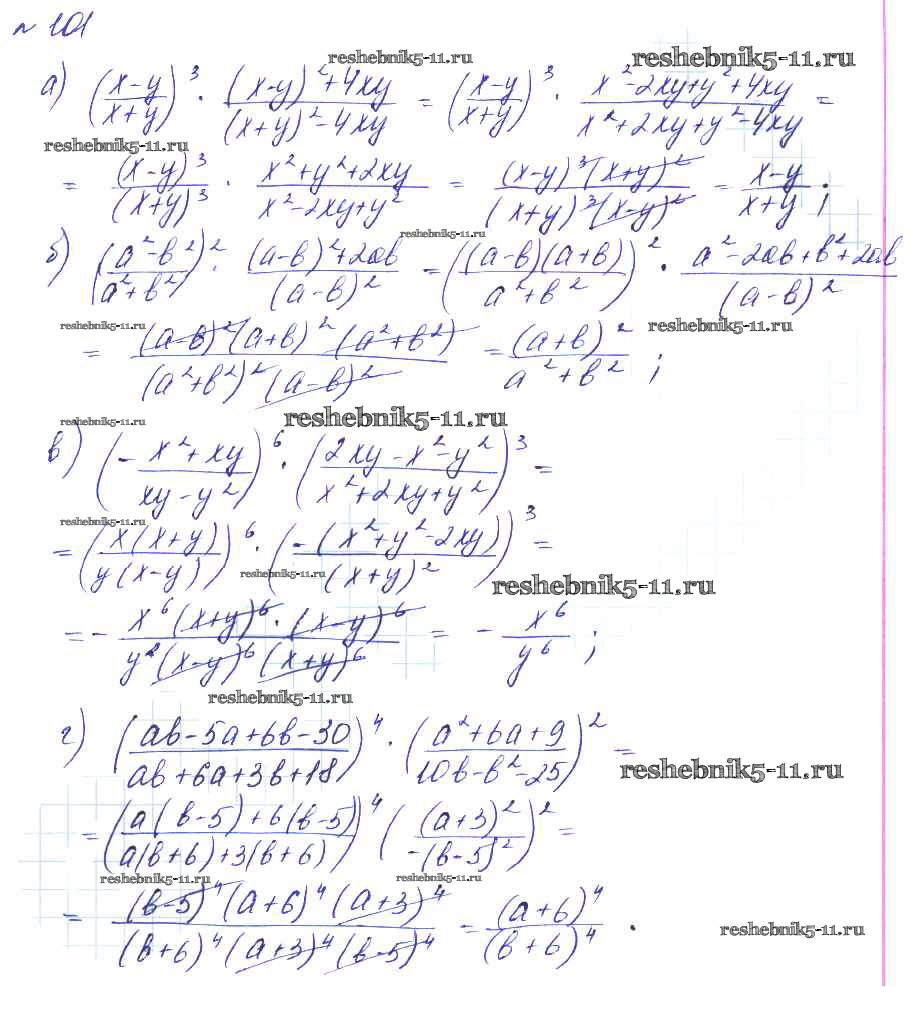 № 101
а) ((x-y)/(x+y))³ · ((x-y)²+4xy)/((x+y)²-4xy) = ((x-y)/(x+y))³ · (x²-2xy+y²+4xy)/(x²+2xy+y²-4xy) =
reshebnik5-11.ru reshebnik5-11.ru
reshebnik5-11.ru
= (x-y)³/(x+y)³ · (x²+y²+2xy)/(x²-2xy+y²) = ((x-y)³(x+y)²)/((x+y)³(x-y)²) = (x-y)/(x+y) ;
reshebnik5-11.ru
б) ((a²-b²)/(a²+b²))² · ((a-b)²+2ab)/(a-b)² = (((a-b)(a+b))/(a²+b²))² · (a²-2ab+b²+2ab)/(a-b)²
reshebnik5-11.ru reshebnik5-11.ru
= ((a-b)²(a+b)²(a²+b²))/((a²+b²)²(a-b)²) = (a+b)²/(a²+b²) ;
reshebnik5-11.ru reshebnik5-11.ru
в) (-(x²+xy)/(xy-y²))⁶ · ((2xy-x²-y²)/(x²+2xy+y²))³ =
reshebnik5-11.ru
= ((x(x+y))/(y(x-y)))⁶ · ((-(x²+y²-2xy))/(x+y)²)³ =
reshebnik5-11.ru reshebnik5-11.ru
= - (x⁶(x+y)⁶·(x-y)⁶)/(y⁶(x-y)⁶(x+y)⁶) = - x⁶/y⁶ ;
reshebnik5-11.ru
г) ((ab-5a+6b-30)/(ab+6a+3b+18))⁴ · ((a²+6a+9)/(10b-b²-25))² =
reshebnik5-11.ru
= ((a(b-5)+6(b-5))/(a(b+6)+3(b+6)))⁴ ((a+3)²/(-(b-5)²))² =
reshebnik5-11.ru reshebnik5-11.ru
= ((b-5)⁴(a+6)⁴(a+3)⁴)/((b+6)⁴(a+3)⁴(b-5)⁴) = (a+6)⁴/(b+6)⁴ .
reshebnik5-11.ru